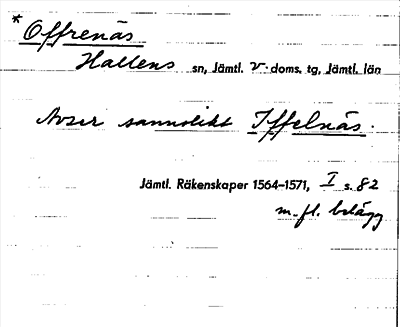 * Offrenäs
Hallens sn, Jämtl. v. doms. tg, Jämtl. län
Avser sannolikt Iffelnäs.
Jämtl. Räkenskaper 1564–1571, I s. 82
m. fl. belägg